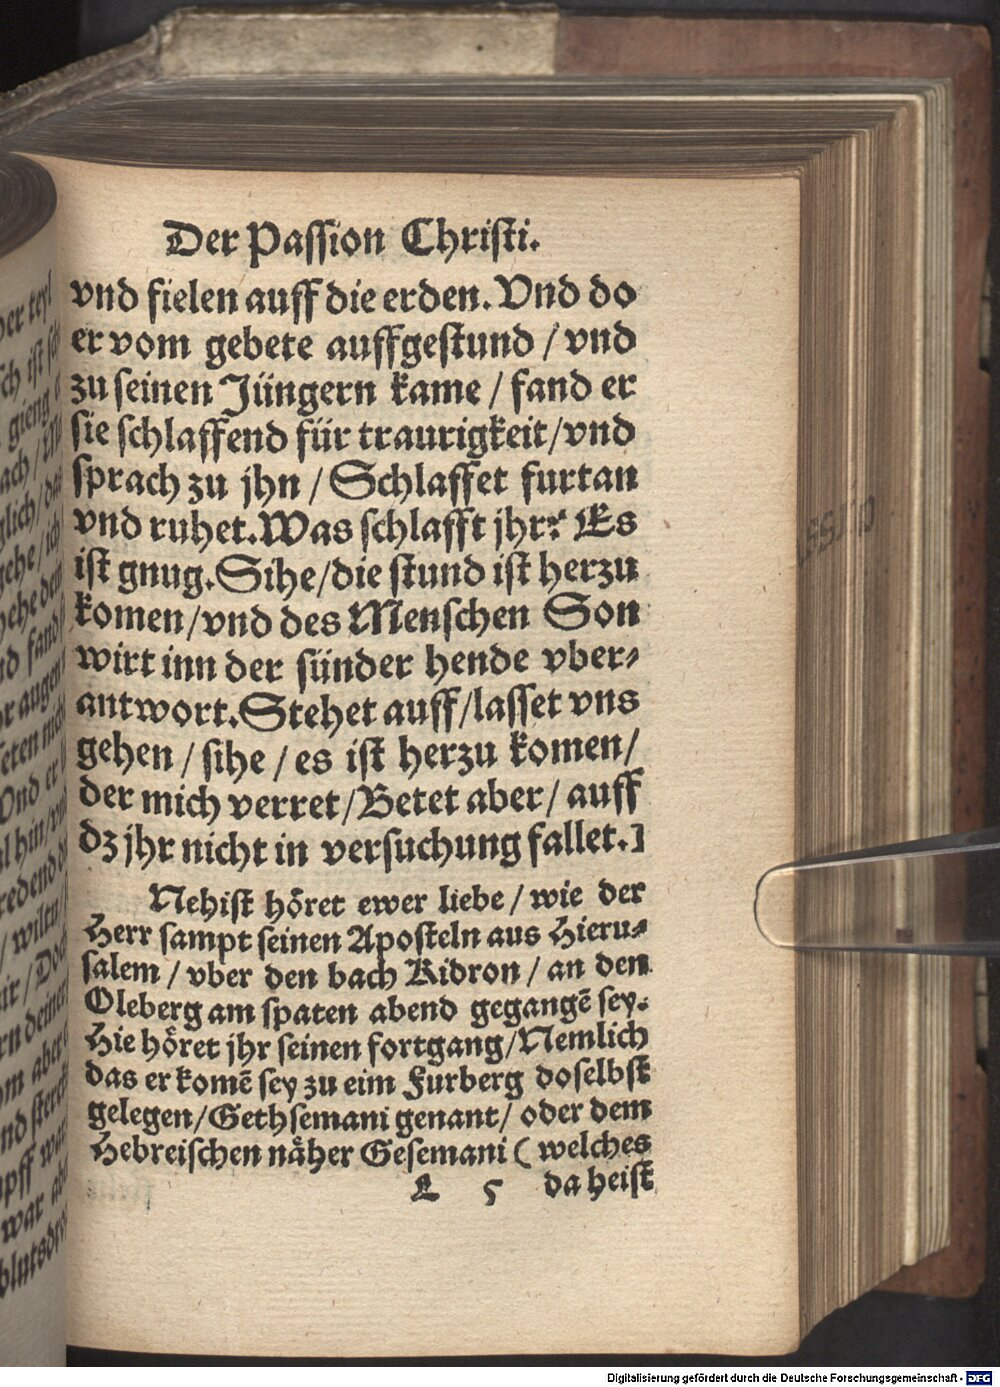 Der Passion Christi.
vnd fielen auff die erden. Vnd do
er vom gebete auffgestund / vnd
zu seinen Jüngern kame / fand er
sie schlaffend für traurigkeit / vnd
sprach zu jhn / Schlaffet furtan
vnd ruhet. Was schlafft jhr? Es
ist gnug. Sihe / die stund ist herzu
komen / vnd des Menschen Son
wirt inn der sünder hende vber⸗
antwort. Stehet auff / lasset vns
gehen / sihe / es ist herzu komen /
der mich verret / Betet aber / auff
dz jhr nicht in versuchung fallet.]
Nehist höret ewer liebe / wie der
Herr sampt seinen Aposteln aus Hieru⸗
salem / vber den bach Kidron / an den
Oleberg am spaten abend gegangē sey.
Hie höret jhr seinen fortgang / Nemlich
das er komē sey zu eim Furberg doselbst
gelegen / Gethsemani genant / oder dem
Hebreischen nåher Gesemani ( welches
L 5 da heist
Digitalisierung gefördert durch die Deutsche Forschungsgemeinschaft - DFG